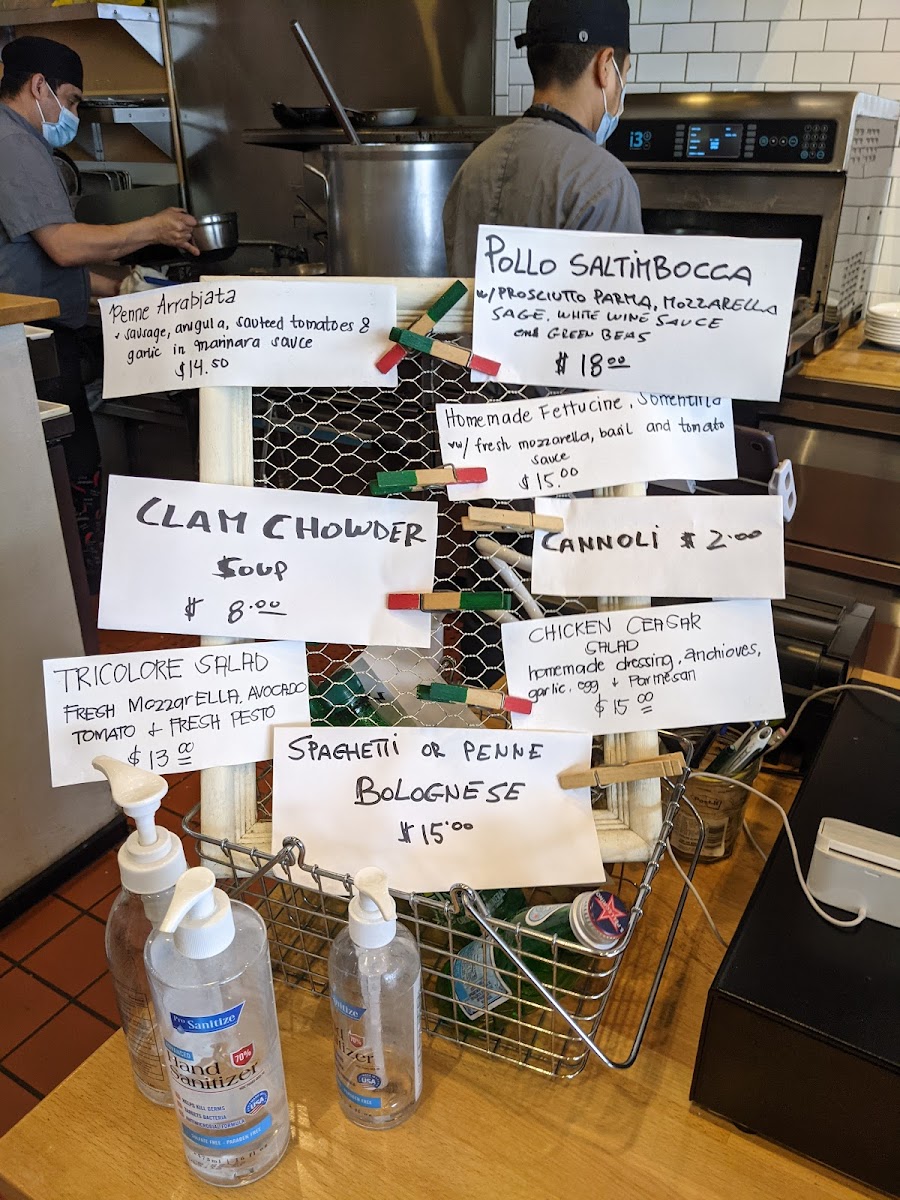 i3
Penne Arrabiata
sausage, arugula, sauteed tomatoes &
garlic in marinara sauce
$14.50
POLLO SALTIMBOCCA
w/ PROSCIUTTO PARMA, MOZZARELLA
SAGE, WHITE WINE SAUCE
and GREEN BEAS
$ 18.00
Homemade Fettucine, Sorrentina
w/ fresh mozzarella, basil and tomato
sauce
$15.00
CLAM CHOWDER
Soup
$ 8.00
CANNOLI $ 2.00
TRICOLORE SALAD
FRESH MOZZARELLA, AVOCADO
TOMATO + FRESH PESTO
$13.00
CHICKEN CEASAR
SALAD
homemade dressing, anchioves,
garlic, egg + Parmesan
$15.00
SPAGHETTI OR PENNE
BOLOGNESE
$15.00
Pro Sanitize
ADVANCED
Hand
Sanitizer
70%
HELPS KILL GERMS
USA
Sanitize
70%
USA